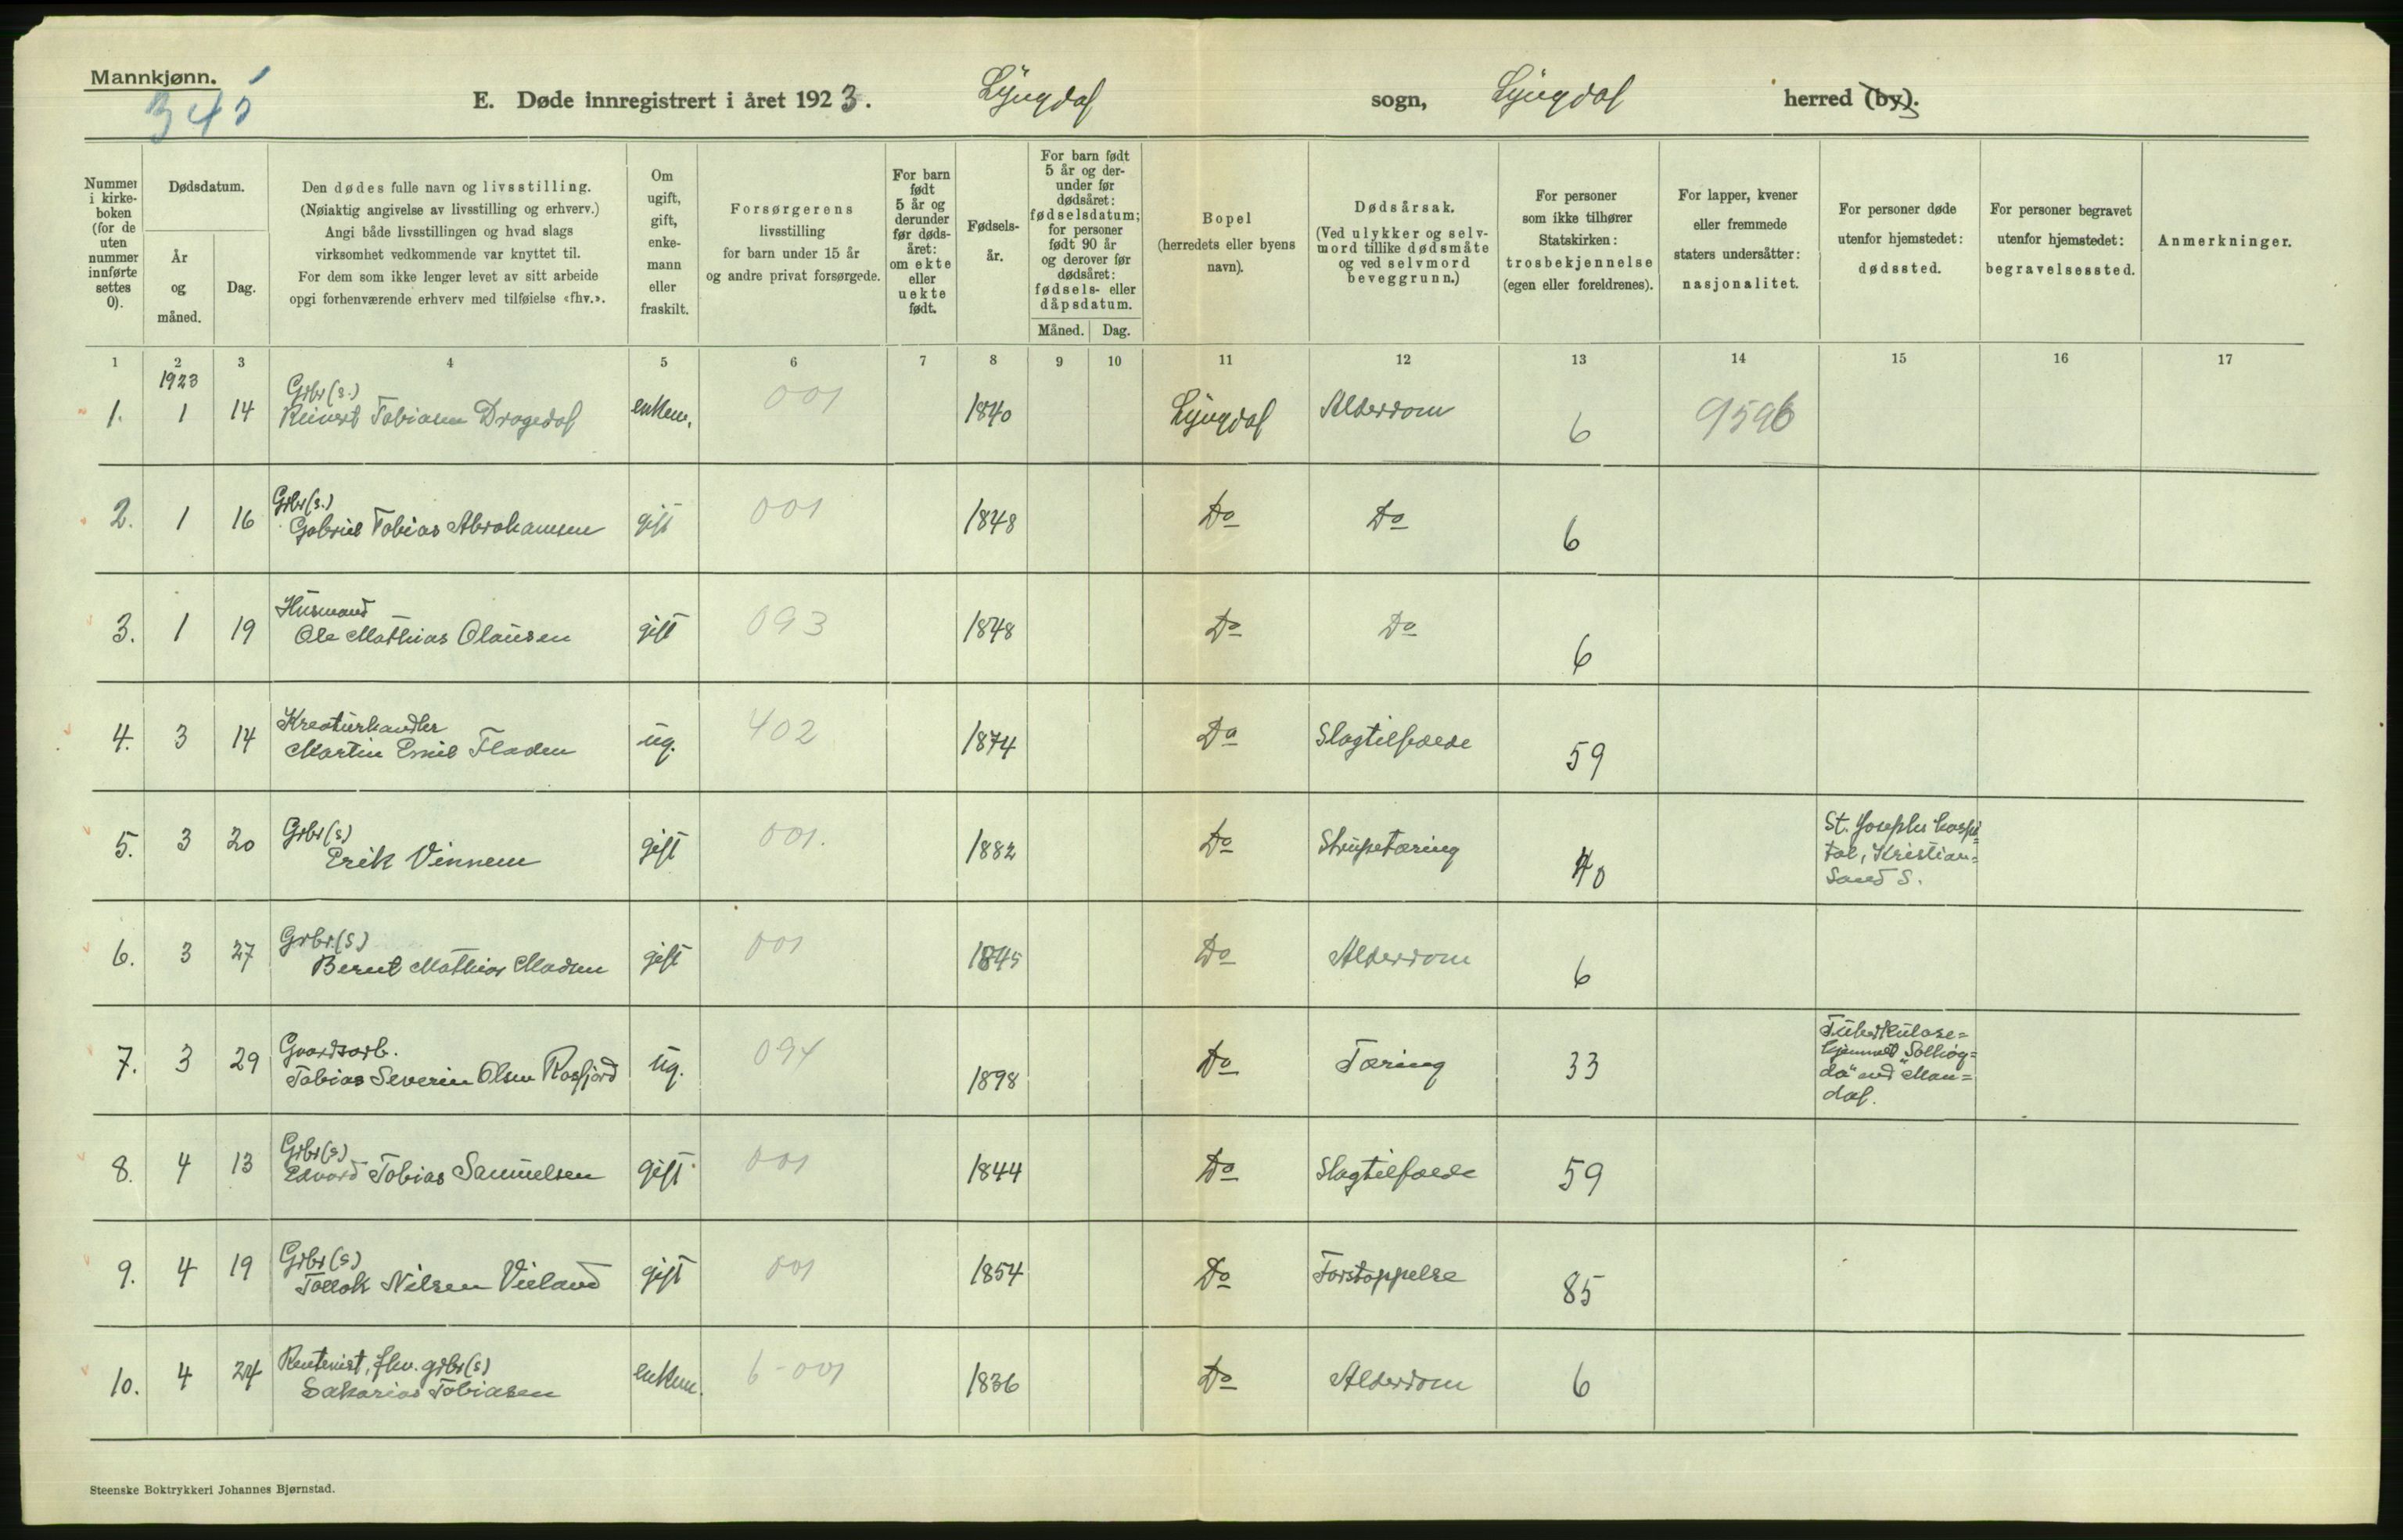 Mannkjønn.
345
E. Døde innregistrert i året 1923. Lyngdal sogn, Lyngdal herred (by).
Nummer i kirkeboken (for de uten nummer innførte settes 0).
Dødsdatum.
År og måned.
Dag.
Den dødes fulle navn og livsstilling.
(Nøiaktig angivelse av livsstilling og erhverv.)
Angi både livsstillingen og hvad slags
virksomhet vedkommende var knyttet til.
For dem som ikke lenger levet av sitt arbeide
opgi forhenværende erhverv med tilføielse «fhv.».
Om ugift, gift, enkemann eller fraskilt.
Forsørgerens
livsstilling
for barn under 15 år
og andre privat forsørgede.
For barn født 5 år og derunder før dødsåret: om ekte eller uekte født.
Fødselsår.
For barn født 5 år og derunder før dødsåret: fødselsdatum; for personer født 90 år og derover før dødsåret: fødsels- eller dåpsdatum.
Måned. Dag.
Bopel
(herredets eller byens
navn).
Dødsårsak.
(Ved ulykker og selvmord tillike dødsmåte og ved selvmord beveggrunn.)
For personer
som ikke tilhører
Statskirken:
trosbekjennelse
(egen eller foreldrenes).
For lapper, kvener
eller fremmede
staters undersåtter:
nasjonalitet.
For personer døde
utenfor hjemstedet:
dødssted.
For personer begravet
utenfor hjemstedet:
begravelsessted.
Anmerkninger.
1 2 3 4 5 6 7 8 9 10 11 12 13 14 15 16 17
1923
1. 1 14 Grbr(s.) Reinert Tobiasen Dragedal enkem. 001 1840 Lyngdal Alderdom 6 9596
2. 1 16 Grbr(s.) Gabriel Tobias Abrahamsen gift 001 1848 Do Do 6
3. 1 19 Husmand Ole Mathias Olausen gift 093 1848 Do Do 6
4. 3 14 Kreaturhandler Martin Emil Fladen ug. 402 1874 Do Slagtilfælde 59
5. 3 20 Grbr(s) Erik Vinnem gift 001. 1882 Do Strupetæring 40 St. Josephs hospital, Kristiansand S.
6. 3 27 Grbr.(s) Bernt Mathias Madsen gift 001 1845 Do Alderdom 6
7. 3 29 Gaardsarb. Tobias Severin Olsen Rosfjord ug. 094 1898 Do Tæring 33 Tuberkulosehjemmet "Solhøgda" ved Mandal.
8. 4 13 Grbr(s) Edvard Tobias Samuelsen gift 001 1844 Do Slagtilfælde 59
9. 4 19 Grbr(s) Tollak Nilsen Vieland gift 001 1854 Do Forstoppelse 85
10. 4 24 Rentenist, fhv. grbr(s) Sakarias Tobiasen enkem. 6-001 1836 Do Alderdom 6
Steenske Boktrykkeri Johannes Bjørnstad.